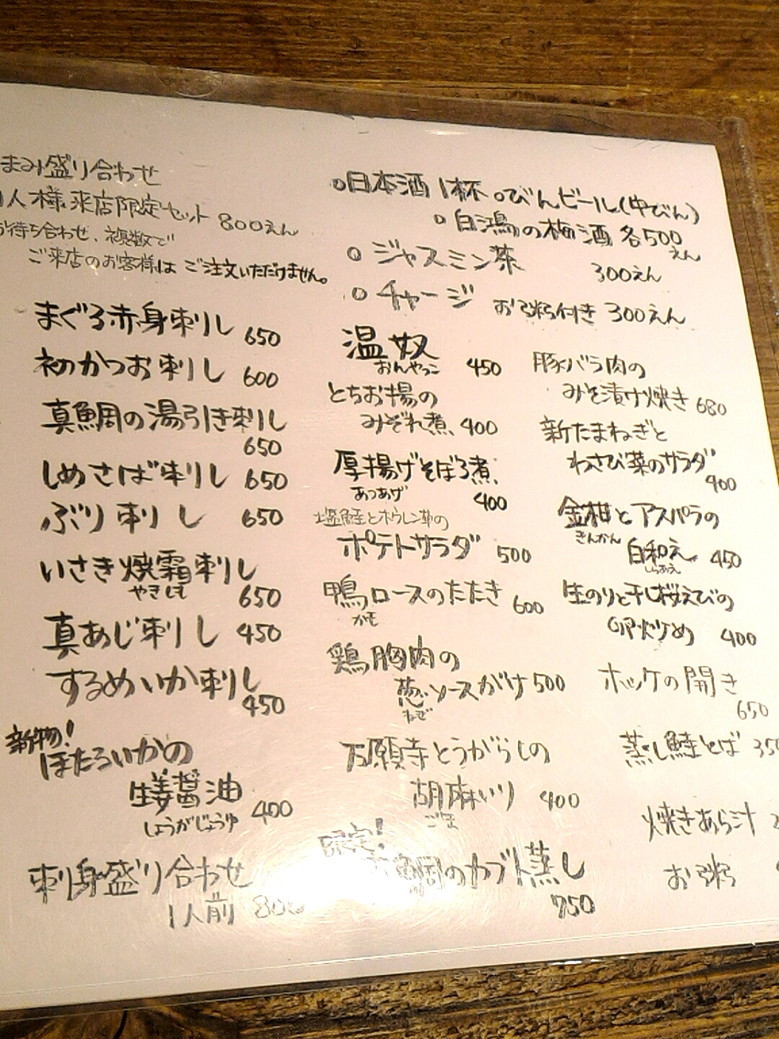 まみ盛り合わせ
1人様来店限定セット 800えん
お待ち合わせ、複数で
ご来店のお客様は ご注文いただけません。
まぐろ赤身刺し 650
初かつお刺し 600
真鯛の湯引き刺し
650
しめさば刺し 650
ぶり刺し 650
いさき焼霜刺し
やきしも
650
真あじ刺し 450
するめいか刺し
450
新物!
ほたるいかの
生姜醤油
しょうがじょうゆ
400
刺身盛り合わせ
1人前 800
○日本酒1杯 ○びんビール(中びん)
○白鴻の梅酒 各500
えん
○ジャスミン茶
300えん
○チャージ お粥付き 300えん
温奴
おんやっこ
450
とちお揚の
みぞれ煮 400
厚揚げそぼろ煮
あつあげ
400
塩鮭とホウレン草の
ポテトサラダ 500
鴨ロースのたたき
かも
600
鶏胸肉の
葱ソースがけ 500
ねぎ
万願寺とうがらしの
胡麻いり 400
ごま
限定!
鯛のカブト蒸し
750
豚バラ肉の
みそ漬け焼き 680
新たまねぎと
わさび菜のサラダ
400
金柑とアスパラの
きんかん
白和え 450
しらあえ
生のりと干し桜えびの
卵炒め 400
ホッケの開き
650
蒸し鮭とば 350
焼きあら汁
お粥